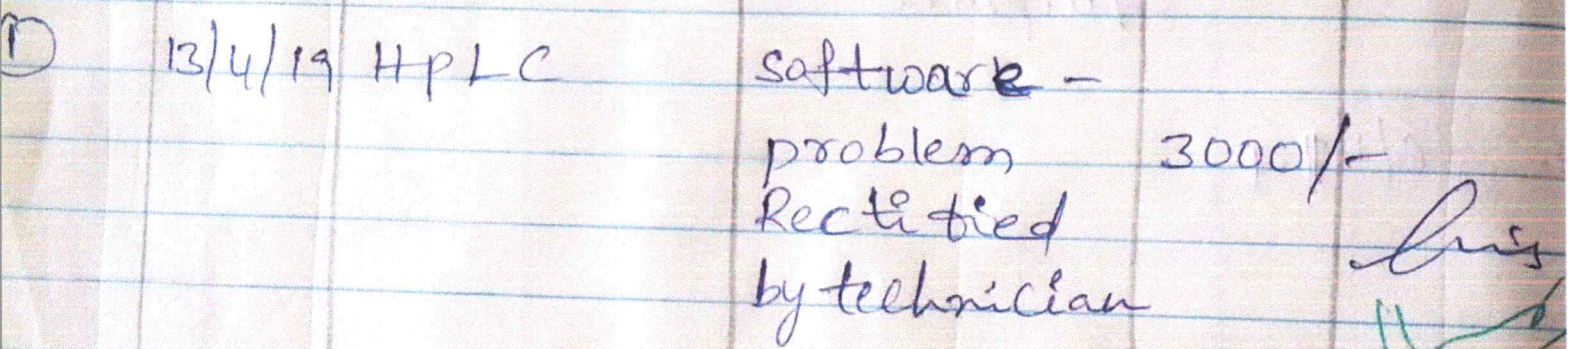 1) 13/4/19 HPLC software -
problem 3000/-
Rectified
by technician